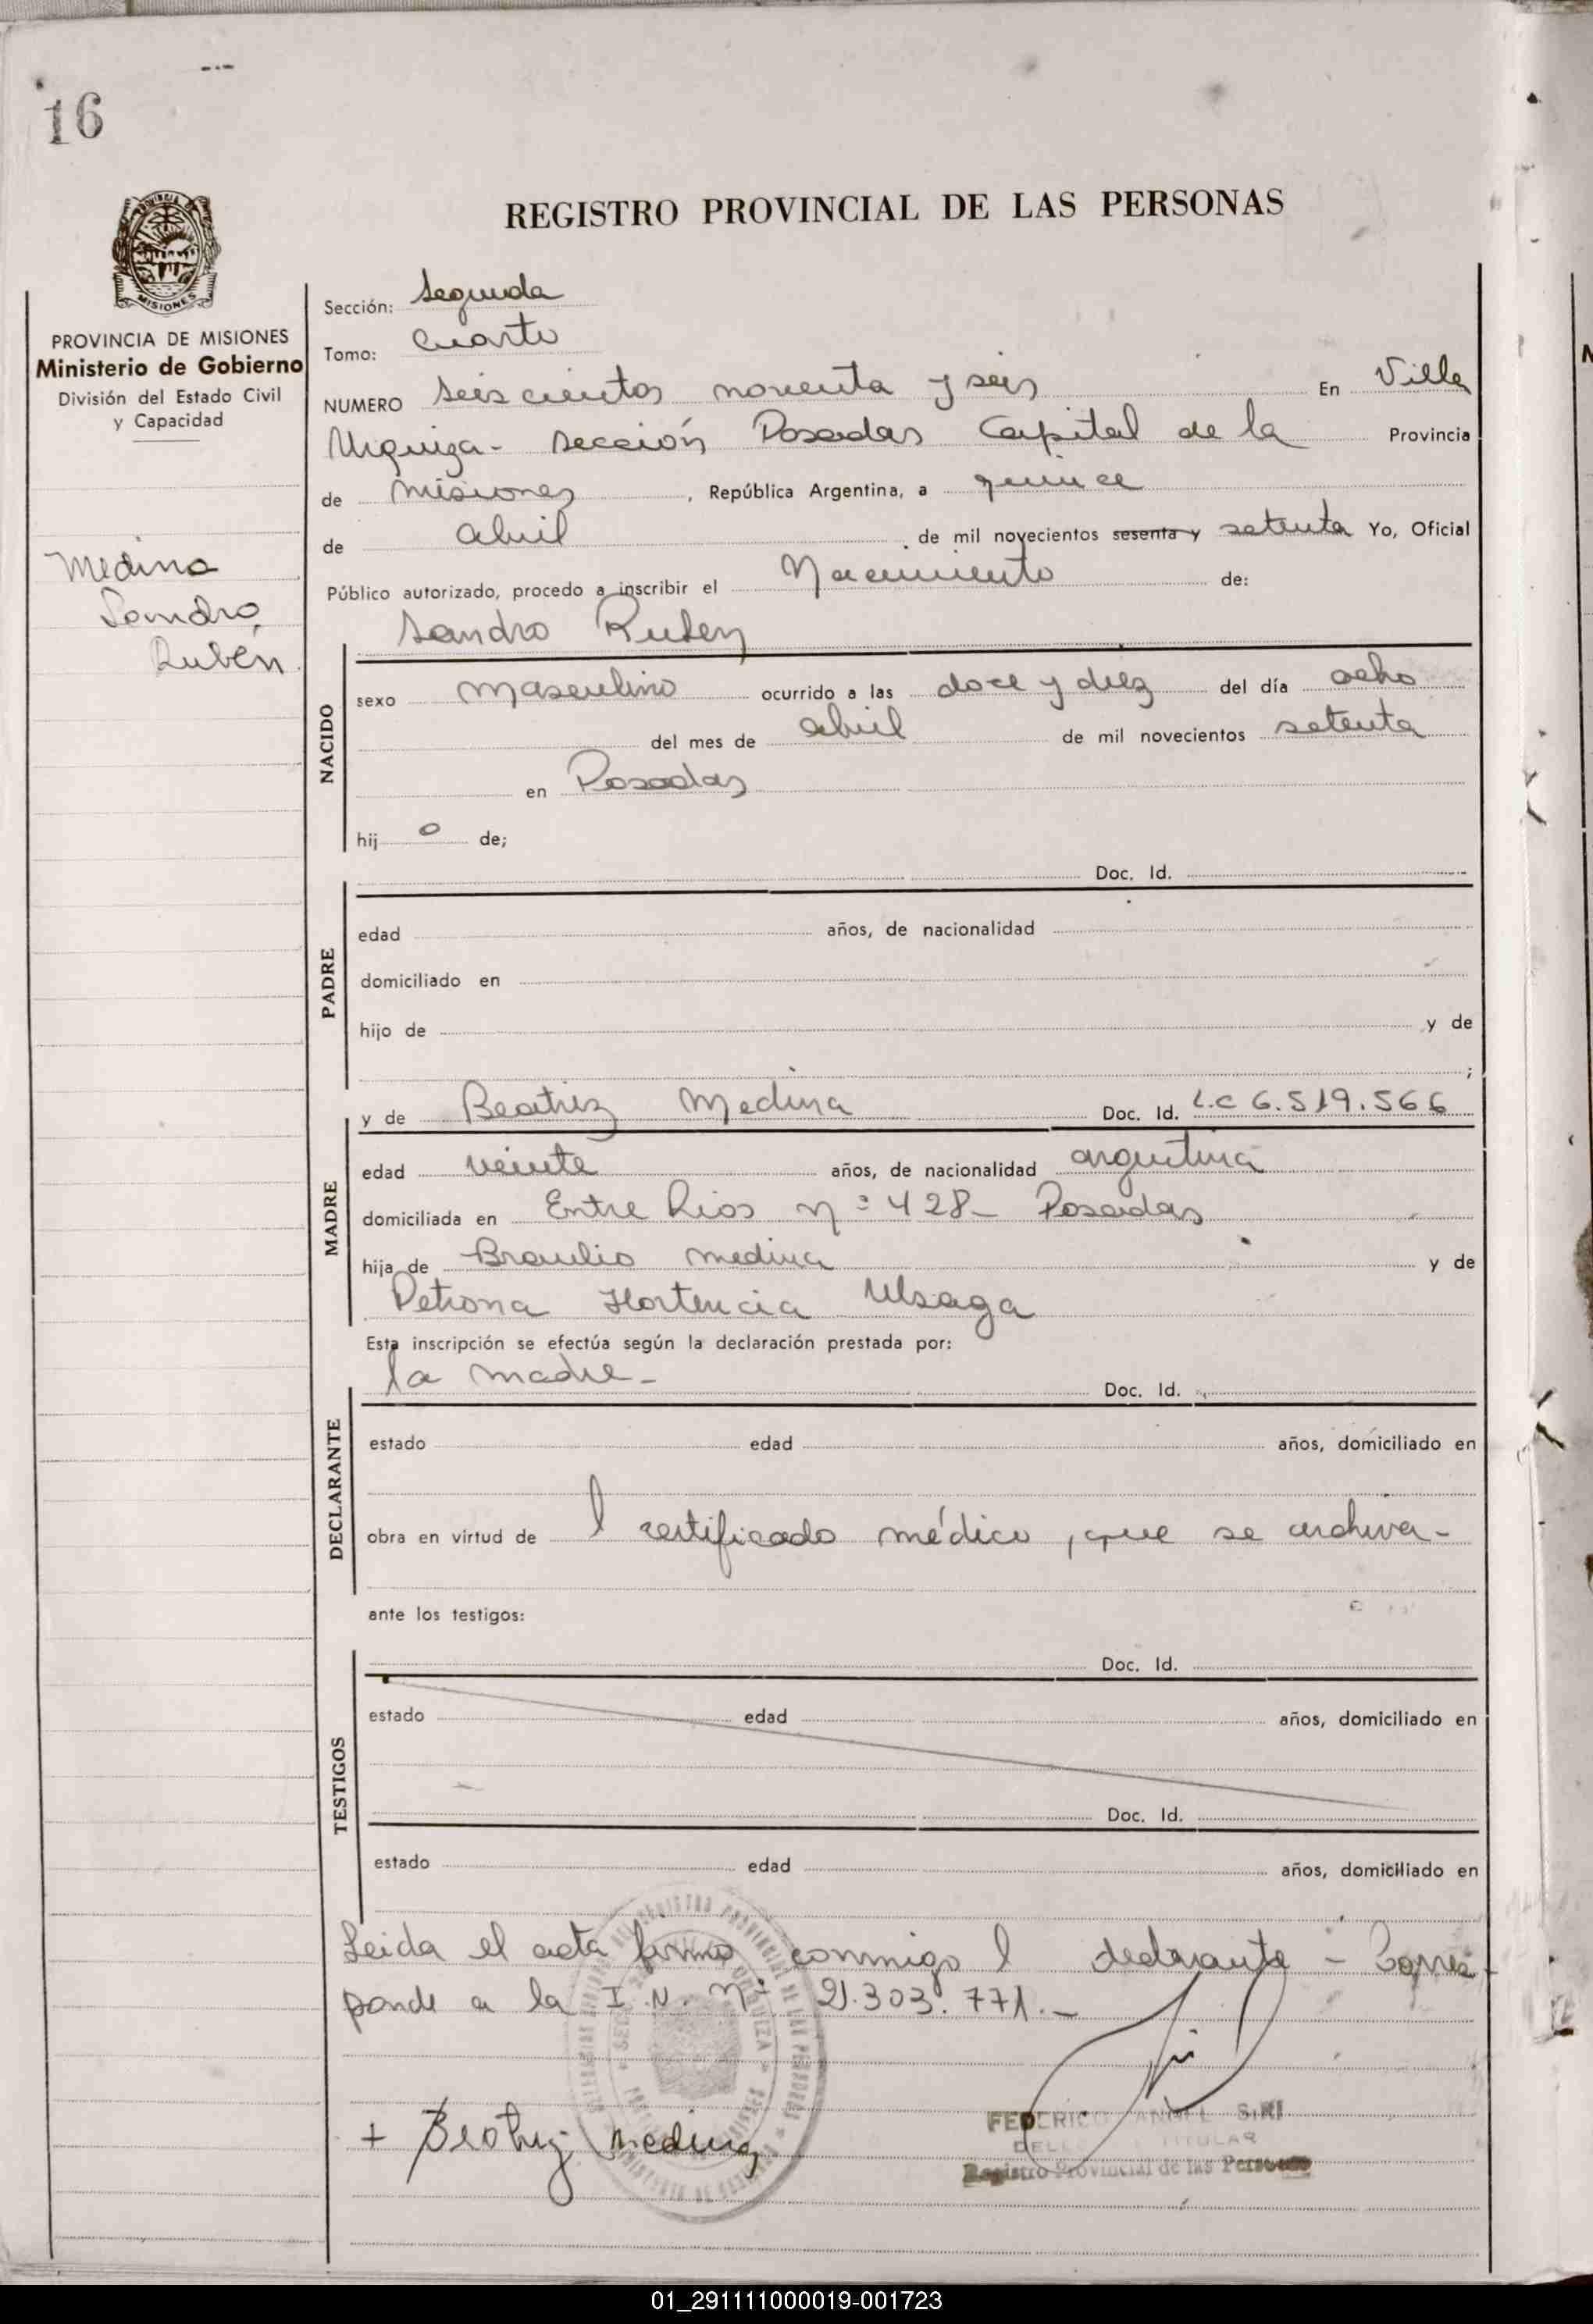 16
REGISTRO PROVINCIAL DE LAS PERSONAS
MISIONES
PROVINCIA DE MISIONES
Ministerio de Gobierno
División del Estado Civil
y Capacidad
Medina
Sandro
Rubén
Sección: Segunda
Tomo: Cuarto
NUMERO Seiscientos noventa y seis En Villa
Urquiza - Sección Posadas Capital de la Provincia
de Misiones, República Argentina, a quince
de abril de mil novecientos sesenta y setenta Yo, Oficial
Público autorizado, procedo a inscribir el Nacimiento de:
Sandro Ruben
NACIDO
sexo masculino ocurrido a las doce y diez del día ocho
del mes de abril de mil novecientos setenta
en Posadas
hij o de;
Doc. Id.
PADRE
edad años, de nacionalidad
domiciliado en
hijo de y de
;
y de Beatriz Medina Doc. Id. L.C 6.519.566
MADRE
edad veinte años, de nacionalidad argentina
domiciliada en Entre Rios nº 428 - Posadas
hija de Braulio Medina y de
Petrona Hortencia Ulsaga
Esta inscripción se efectúa según la declaración prestada por:
la madre - Doc. Id.
DECLARANTE
estado edad años, domiciliado en
obra en virtud de l certificado médico, que se archiva -
ante los testigos:
Doc. Id.
TESTIGOS
estado edad años, domiciliado en
Doc. Id.
estado edad años, domiciliado en
Leida el acta firma conmigo l declarante - Corres
ponde a la I.N. nº 21.303.771. -
+ Beatriz Medina
FEDERICO ANGEL SIRI
TITULAR
Registro Provincial de las Personas
01_291111000019-001723